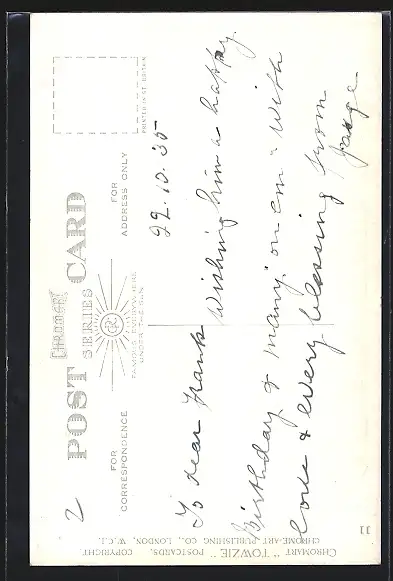 CHROMART
POST CARD
SERIES
FAMOUS EVERYWHERE
UNDER THE SUN
PRINTED IN GT. BRITAIN
FOR
CORRESPONDENCE
FOR
ADDRESS ONLY
2
22.10.35
To dear Frank
Wishing him a happy
Birthday & many "on em" with
love & every blessing from
CHROMART "TOWZIE" POSTCARDS. COPYRIGHT
CHROME-ART PUBLISHING CO., LONDON, W.C.1.
11